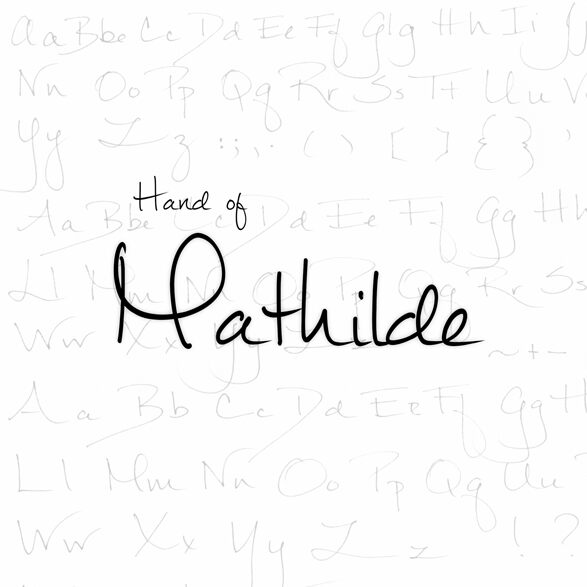 Aa Bb Cc Dd Ee Ff Gg Hh Ii
Nn Oo Pp Qq Rr Ss Tt Uu
Yy Zz : ; , . ( ) [ ] { } '
Hand of
Aa Bb Cc Dd Ee Ff Gg Hh
Mathilde
Ll Mm Nn Oo Pp Qq Rr Ss
Ww Xx Yy Zz ~ + -
Aa Bb Cc Dd Ee Ff Gg H
Ll Mm Nn Oo Pp Qq Uu
Ww Xx Yy Zz ! ?